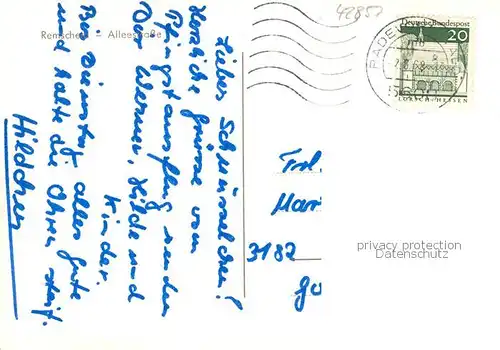 Remscheid - Alleestraße
42851
Deutsche Bundespost
20
LORSCH-HESSEN
RADE
Liebes Schnüsselchen!
Herzliche Grüsse vom
Pfingstausflug senden
Dir Werner, Hilde und
Kinder.
Bei Dienstag alles gute
und halte die Ohren steif.
Hildchen
Frl.
Mar
3182
privacy protection
Datenschutz